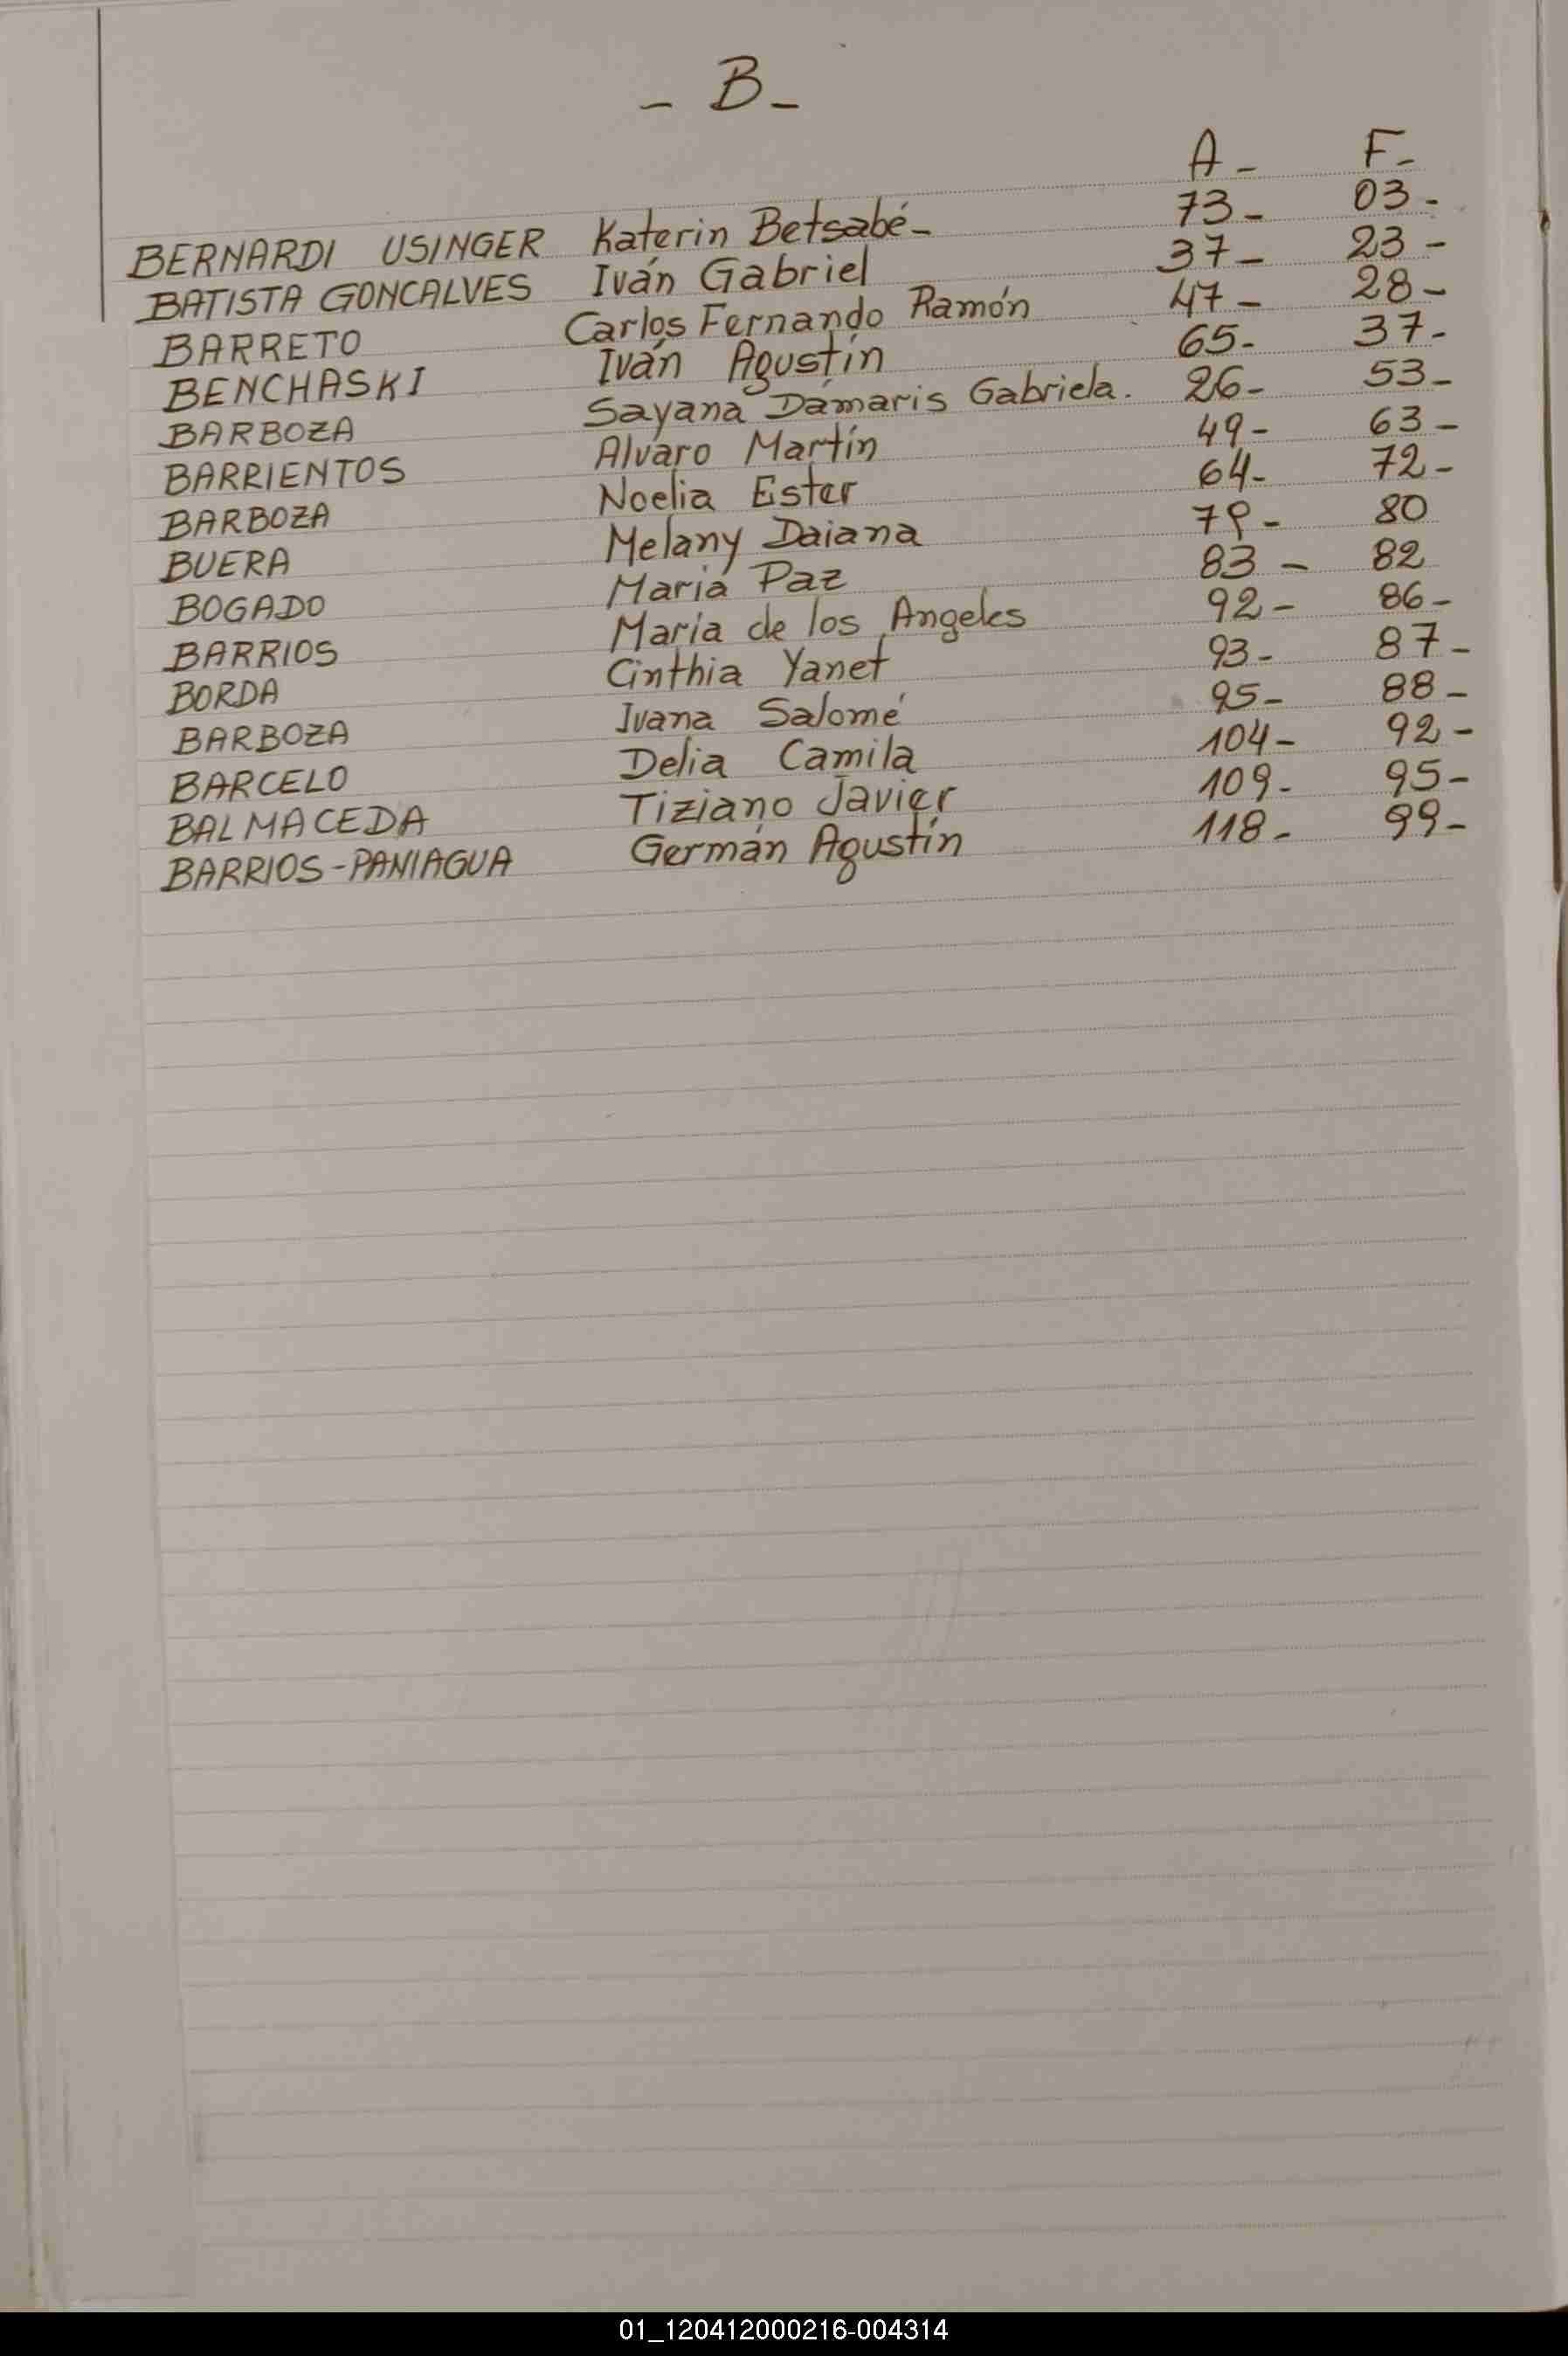 - B -
A - F -
BERNARDI USINGER Katerin Betsabé - 73 - 03 -
BATISTA GONCALVES Iván Gabriel 37 - 23 -
BARRETO Carlos Fernando Ramón 47 - 28 -
BENCHASKI Iván Agustín 65 - 37 -
BARBOZA Sayana Dámaris Gabriela. 26 - 53 -
BARRIENTOS Alvaro Martín 49 - 63 -
BARBOZA Noelia Ester 64 - 72 -
BUERA Melany Daiana 79 - 80
BOGADO María Paz 83 - 82
BARRIOS María de los Angeles 92 - 86 -
BORDA Cinthia Yanet 93 - 87 -
BARBOZA Ivana Salomé 95 - 88 -
BARCELO Delia Camila 104 - 92 -
BALMACEDA Tiziano Javier 109 - 95 -
BARRIOS - PANIAGUA Germán Agustín 118 - 99 -
01_120412000216-004314